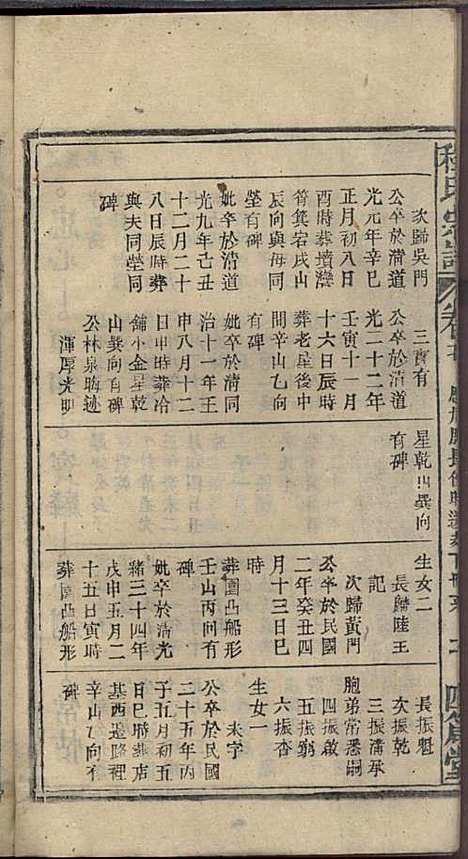 程氏宗譜
卷
次歸吳門
公卒於清道
光元年辛巳
正月初八日
酉時葬墳灣
筲箕宕戌山
辰向與母同
塋有碑
妣卒於清道
光九年己丑
十二月二十
八日辰時葬
與夫同塋同
碑
三實有
公卒於清道
光二十二年
壬寅十一月
十六日辰時
葬老屋後中
間辛山乙向
有碑
妣卒於清同
治十一年壬
申八月十二
日申時葬冷
舖小金星乾
山巽向自碑
公林泉晦迹
渾厚光明
星乾山巽向
有碑
生女二
長歸陸王
記
次歸黃門
公卒於民國
二年癸丑四
月十三日巳
時
葬圍凸船形
壬山丙向有
碑
妣卒於清光
緒三十四年
戊申五月二
十五日寅時
葬圍凸船形
長振魁
次振乾
三振藩承
胞弟常悉嗣
四振啟
五振窮
六振杏
生女一
未字
公卒於民國
二十五年丙
子五月初五
日巳時葬店
基西邊路裡
辛山乙向有
碑